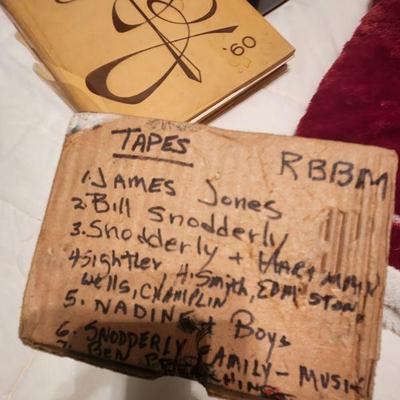 '60
TAPES
RBBM
1. JAMES Jones
2. Bill Snodderly
3. Snodderly + HARTMAN
4 Sightler 4. Smith, EDMISTON
Wells, CHAMPLIN
5. NADINE + Boys
6. SNODDERLY FAMILY - MUSIC
7. BEN PREACHING